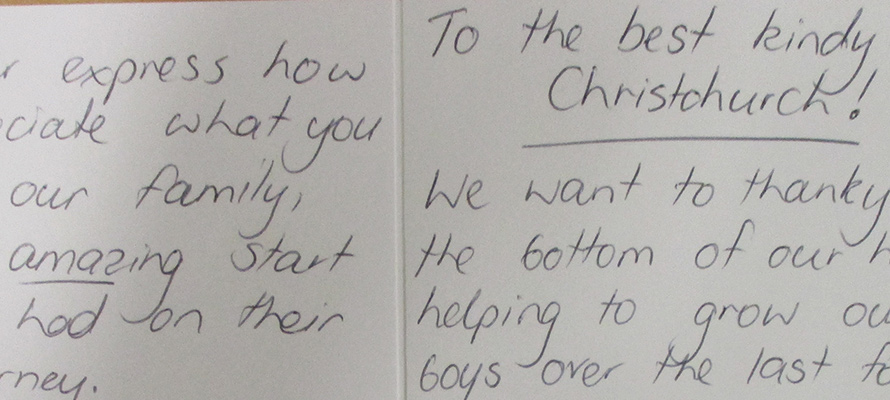 express how
what you
our family,
amazing start
had on their
To the best kindy
Christchurch!
We want to thank y
the bottom of our h
helping to grow ou
boys over the last fo